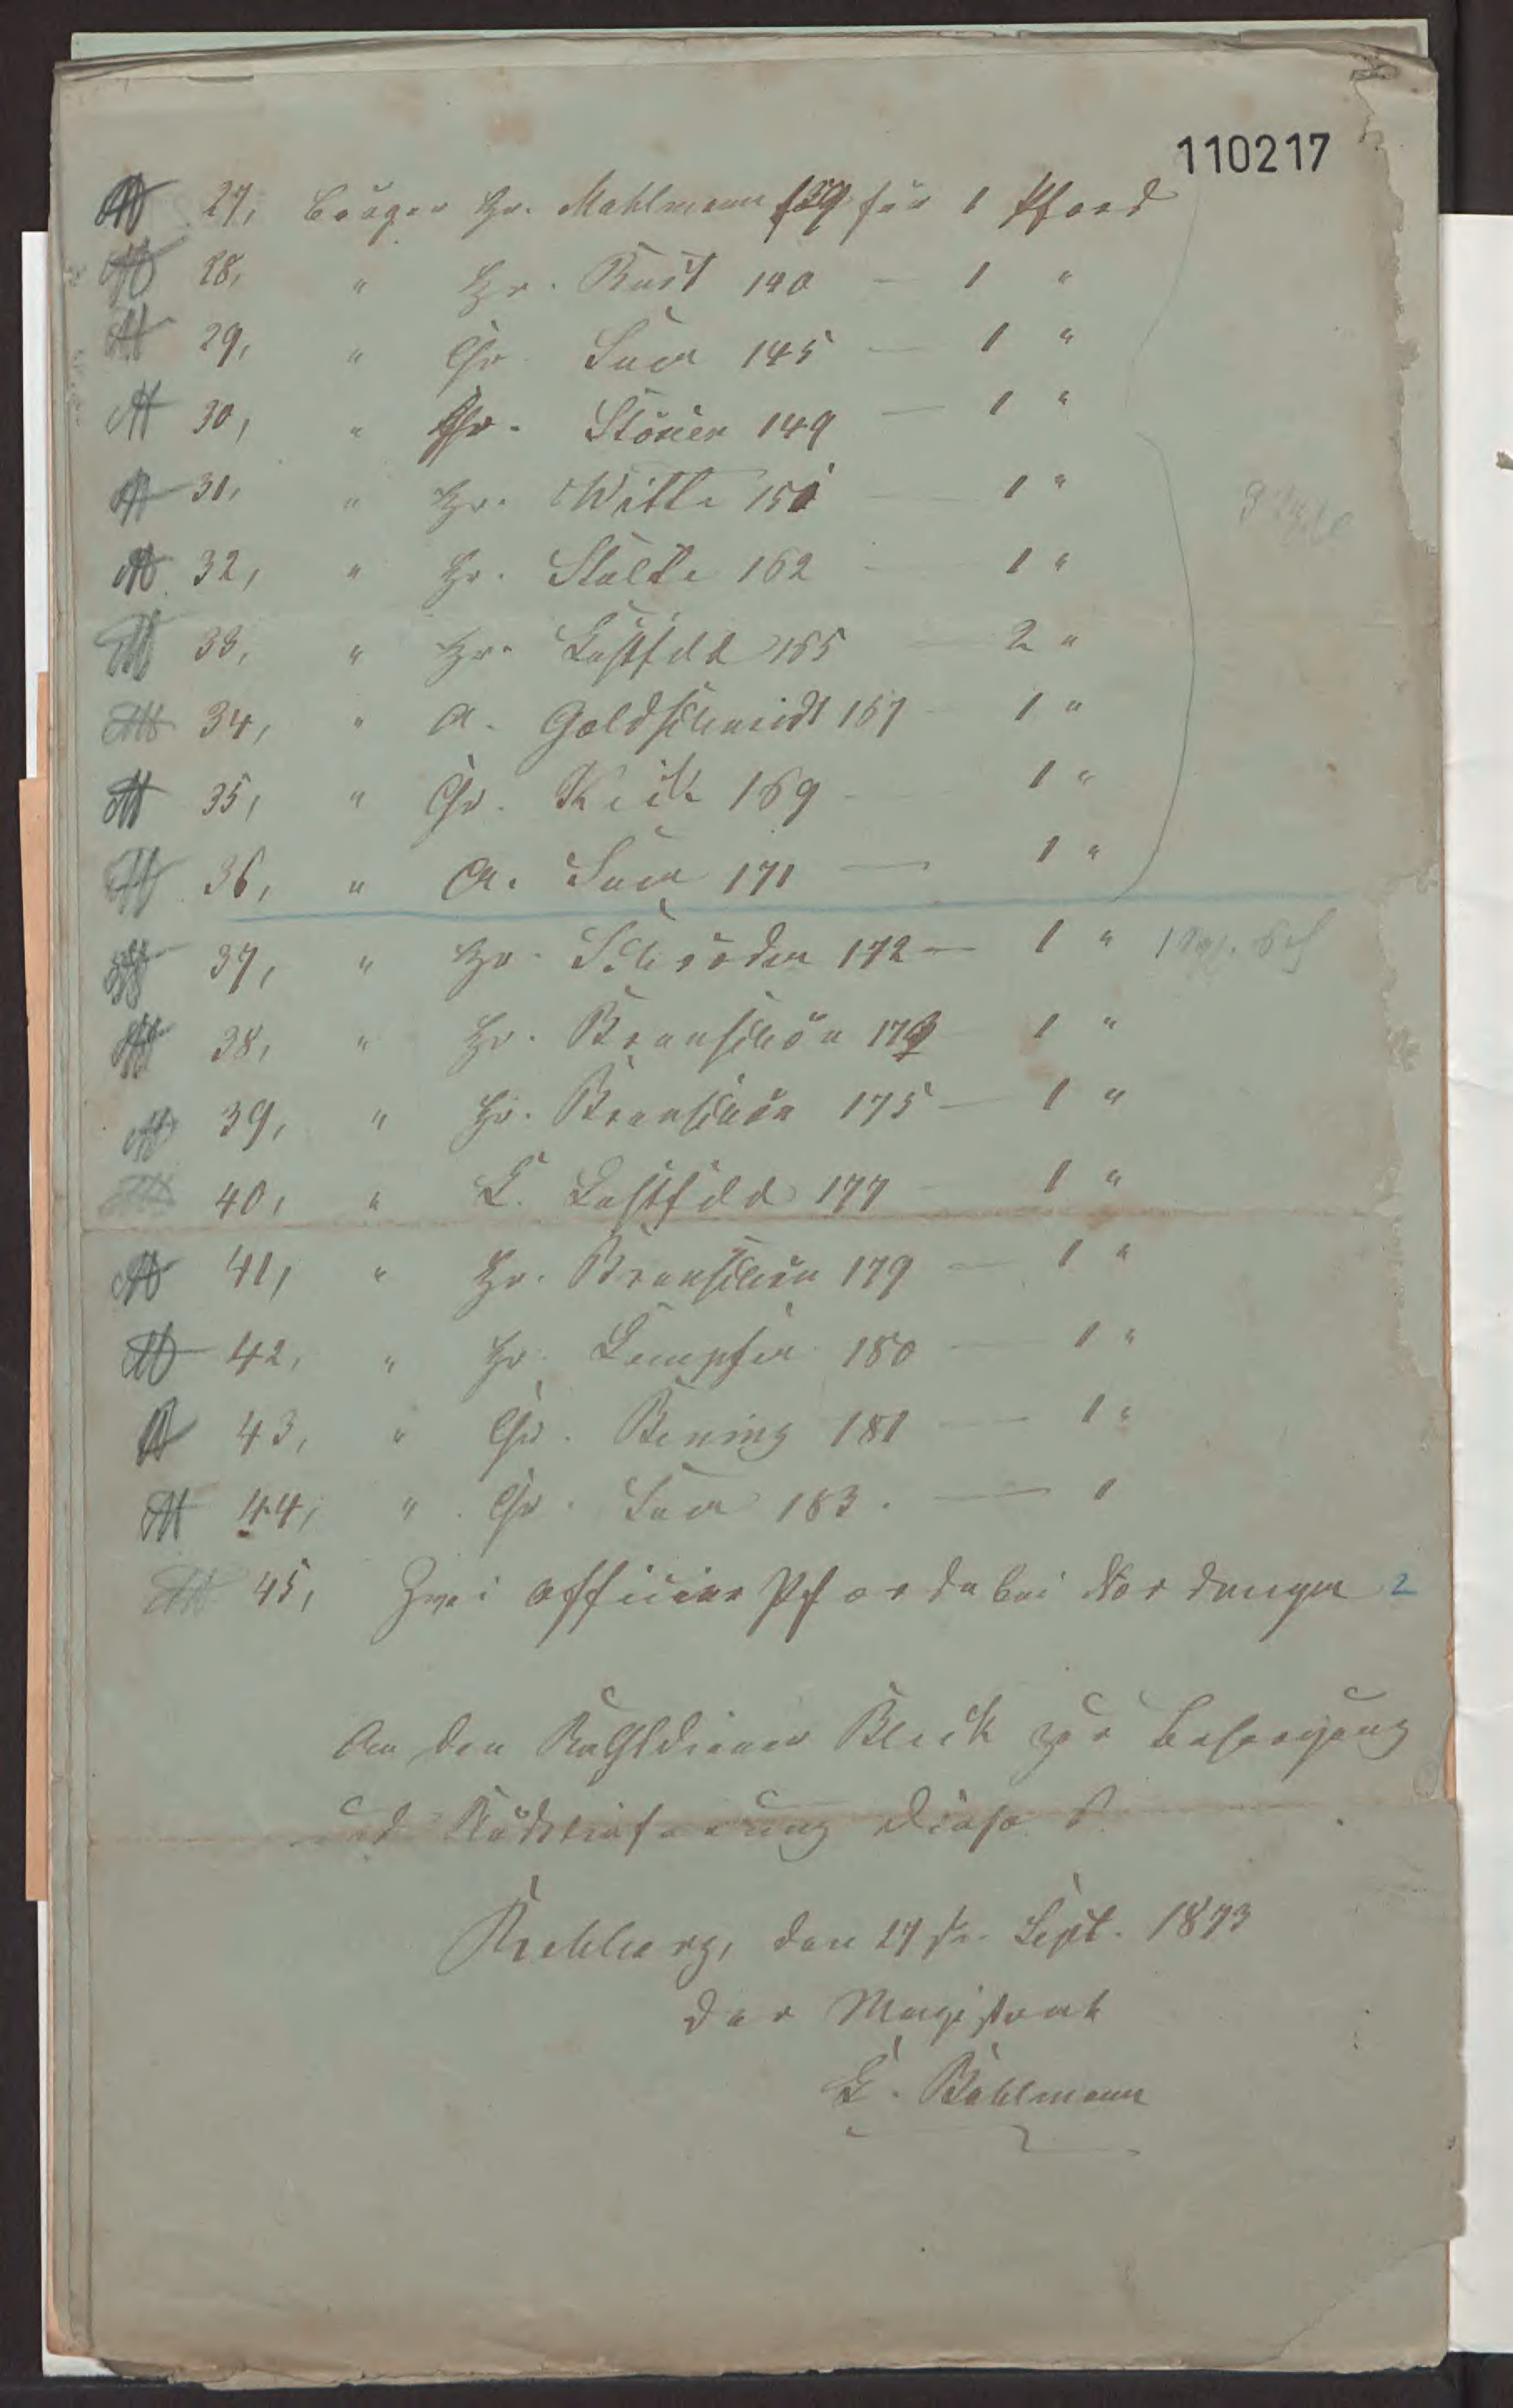 110217
27, Bürger Hr. Mahlmann 139 für 1 Pferd
28, " Hr. Rust 140 — 1 "
29, " Chr. Suer 145 — 1 "
30, " Chr. Stöver 149 — 1 "
31, " Hr. Witte 151 — 1 "
32, " Hr. Stolte 162 — 1 "
33, " Hr. Lustfeld 165 — 2 "
34, " A. Goldschmidt 167 — 1 "
35, " Chr. Keik 169 — 1 "
36, " A. Suer 171 — 1 "
37, " Hr. Schröder 172 — 1 "
38, " Hr. Brunschön 173 1 "
39, " Hr. Brunschön 175 — 1 "
40, " L. Lustfeld 177 — 1 "
41, " Hr. Brunschön 179 — 1 "
42, " Hr. Dempfer 180 — 1 "
43, " Chr. Bening 181 — 1 "
44, " Chr. Suer 183. — 1
45, Zwei Officier Pferde bei Nordmeyer 2
An den Rathsdiener Block zur Besorgung
und Rücklieferung dieses.
Rehburg, den 27ten Sept. 1873
Der Magistrat
E. Bählmann